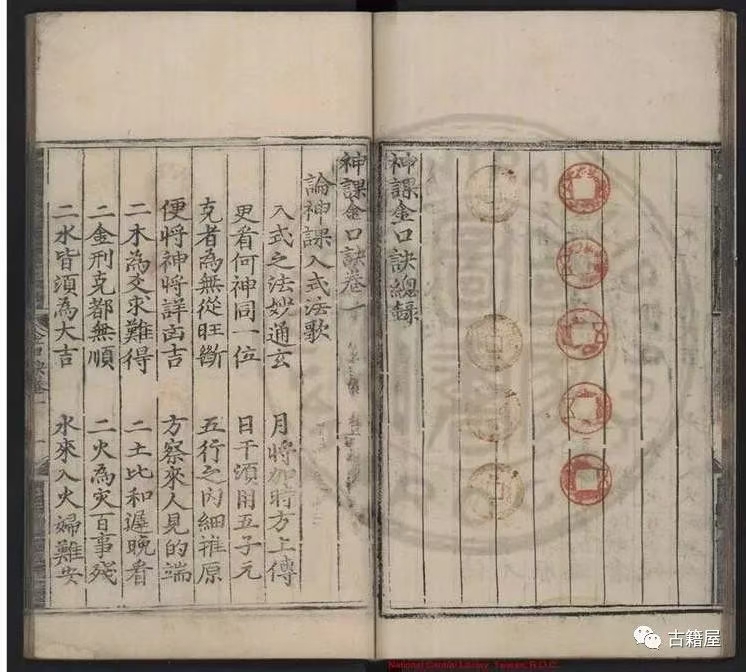 神課金口訣總錄
神課金口訣卷一
論神課入式法歌
入式之法妙通玄 月將加時方上傳
更看何神同一位 日干須用五子元
克者為無從旺斷 五行之內細推原
便將神將詳凶吉 方察來人見的端
二木為爻求難得 二土比和遲晚看
二金刑克都無順 二火為灾百事殘
二水皆須為大吉 水來入火婦難安
National Central Library, Taiwan, R.O.C.
古籍屋